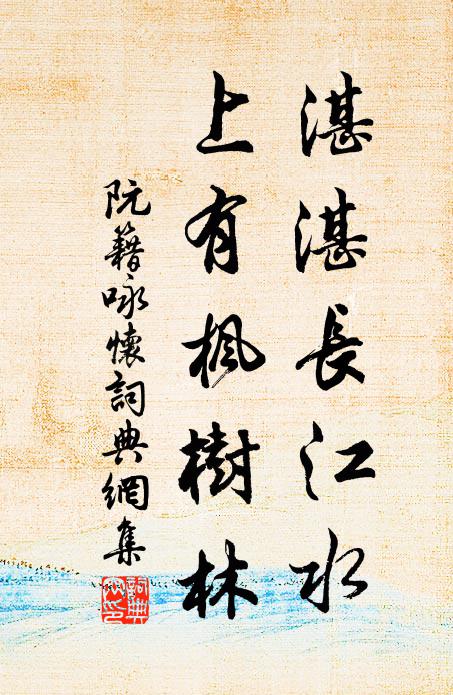 湛湛長江水
上有楓樹林
阮籍咏懷詞典網集